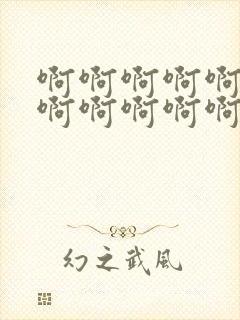 啊啊啊啊啊
啊啊啊啊啊
幻之武风